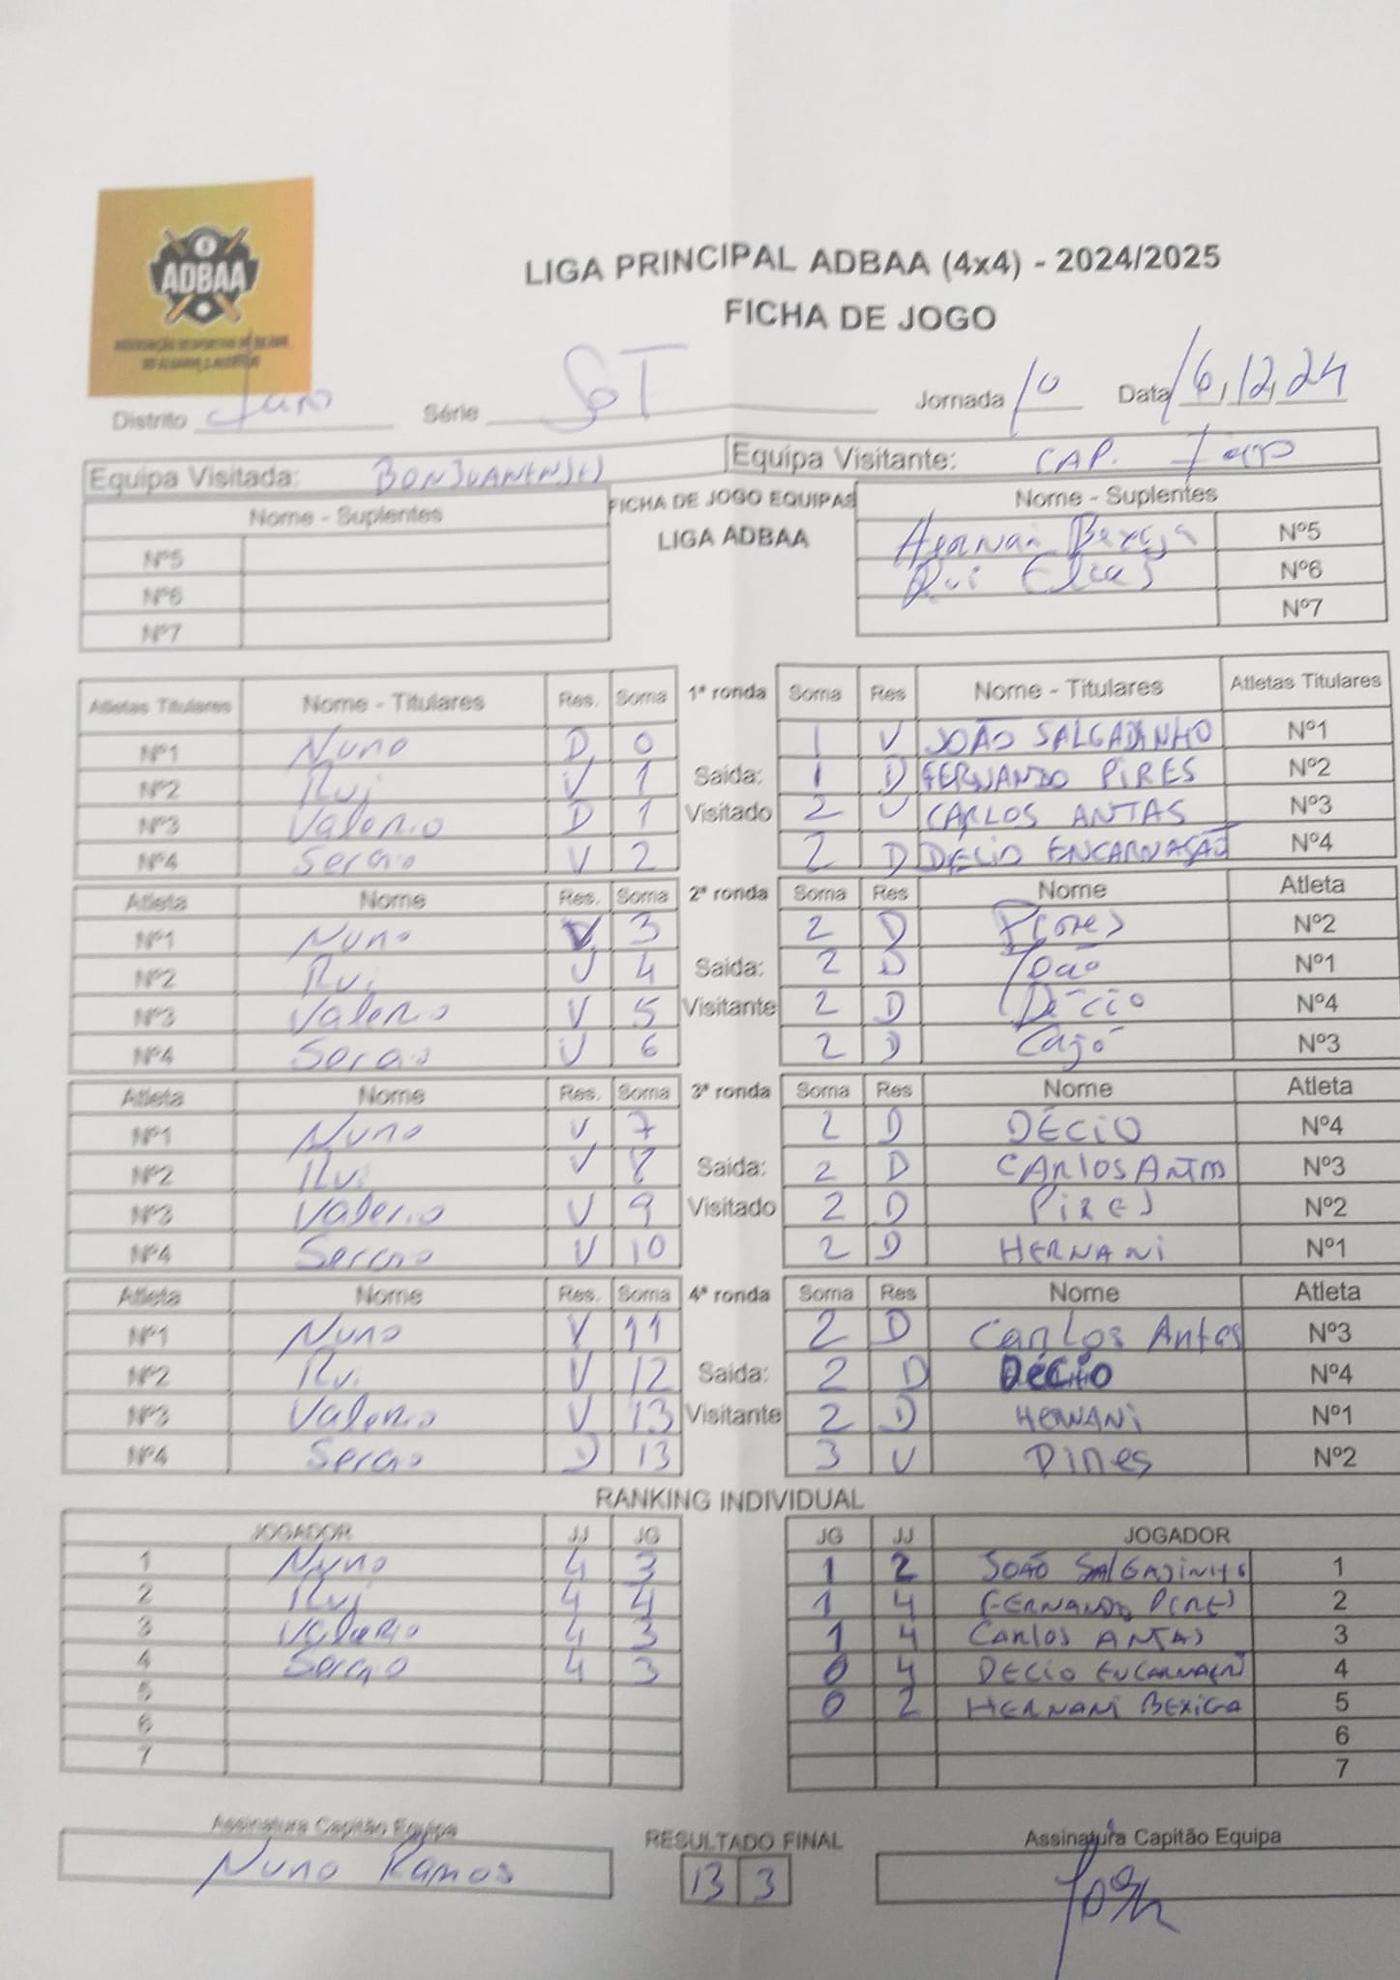 ADBAA
LIGA PRINCIPAL ADBAA (4x4) - 2024/2025
FICHA DE JOGO
Distrito Série Jornada 10 Data 16,12,24
Equipa Visitada: BONJOANENSES Equipa Visitante: CAP.
Nome - Suplentes FICHA DE JOGO EQUIPAS Nome - Suplentes
LIGA ADBAA
Nº5 Hernani Bexiga Nº5
Nº6 Rui Elias Nº6
Nº7 Nº7
Atletas Titulares Nome - Titulares Res. Soma 1ª ronda Soma Res Nome - Titulares Atletas Titulares
Nº1 Nuno D 0 1 V JOÃO SALGADINHO Nº1
Nº2 Rui V 1 Saida: 1 D FERNANDO PIRES Nº2
Nº3 Valerio D 1 Visitado 2 V CARLOS ANTAS Nº3
Nº4 Sergio V 2 2 D DÉCIO ENCARNAÇÃO Nº4
Atleta Nome Res. Soma 2ª ronda Soma Res Nome Atleta
Nº1 Nuno V 3 2 D Pires Nº2
Nº2 Rui V 4 Saida: 2 D João Nº1
Nº3 Valerio V 5 Visitante 2 D Décio Nº4
Nº4 Sergio V 6 2 D Cajó Nº3
Atleta Nome Res. Soma 3ª ronda Soma Res Nome Atleta
Nº1 Nuno V 7 2 D DÉCIO Nº4
Nº2 Rui V 8 Saida: 2 D CARLOS ANTAS Nº3
Nº3 Valerio V 9 Visitado 2 D PIRES Nº2
Nº4 Sergio V 10 2 D HERNANI Nº1
Atleta Nome Res. Soma 4ª ronda Soma Res Nome Atleta
Nº1 Nuno V 11 2 D Carlos Antas Nº3
Nº2 Rui V 12 Saida: 2 D Décio Nº4
Nº3 Valerio V 13 Visitante 2 D HERNANI Nº1
Nº4 Sergio D 13 3 V Pires Nº2
RANKING INDIVIDUAL
JOGADOR JJ JG JG JJ JOGADOR
1 Nuno 4 3 1 2 JOÃO SALGADINHO 1
2 Rui 4 4 1 4 FERNANDO PIRES 2
3 Valerio 4 3 1 4 CARLOS ANTAS 3
4 Sergio 4 3 0 4 DECIO ENCARNAÇÃO 4
5 0 2 HERNANI BEXIGA 5
6 6
7 7
Assinatura Capitão Equipa RESULTADO FINAL Assinatura Capitão Equipa
Nuno Ramos 13 3